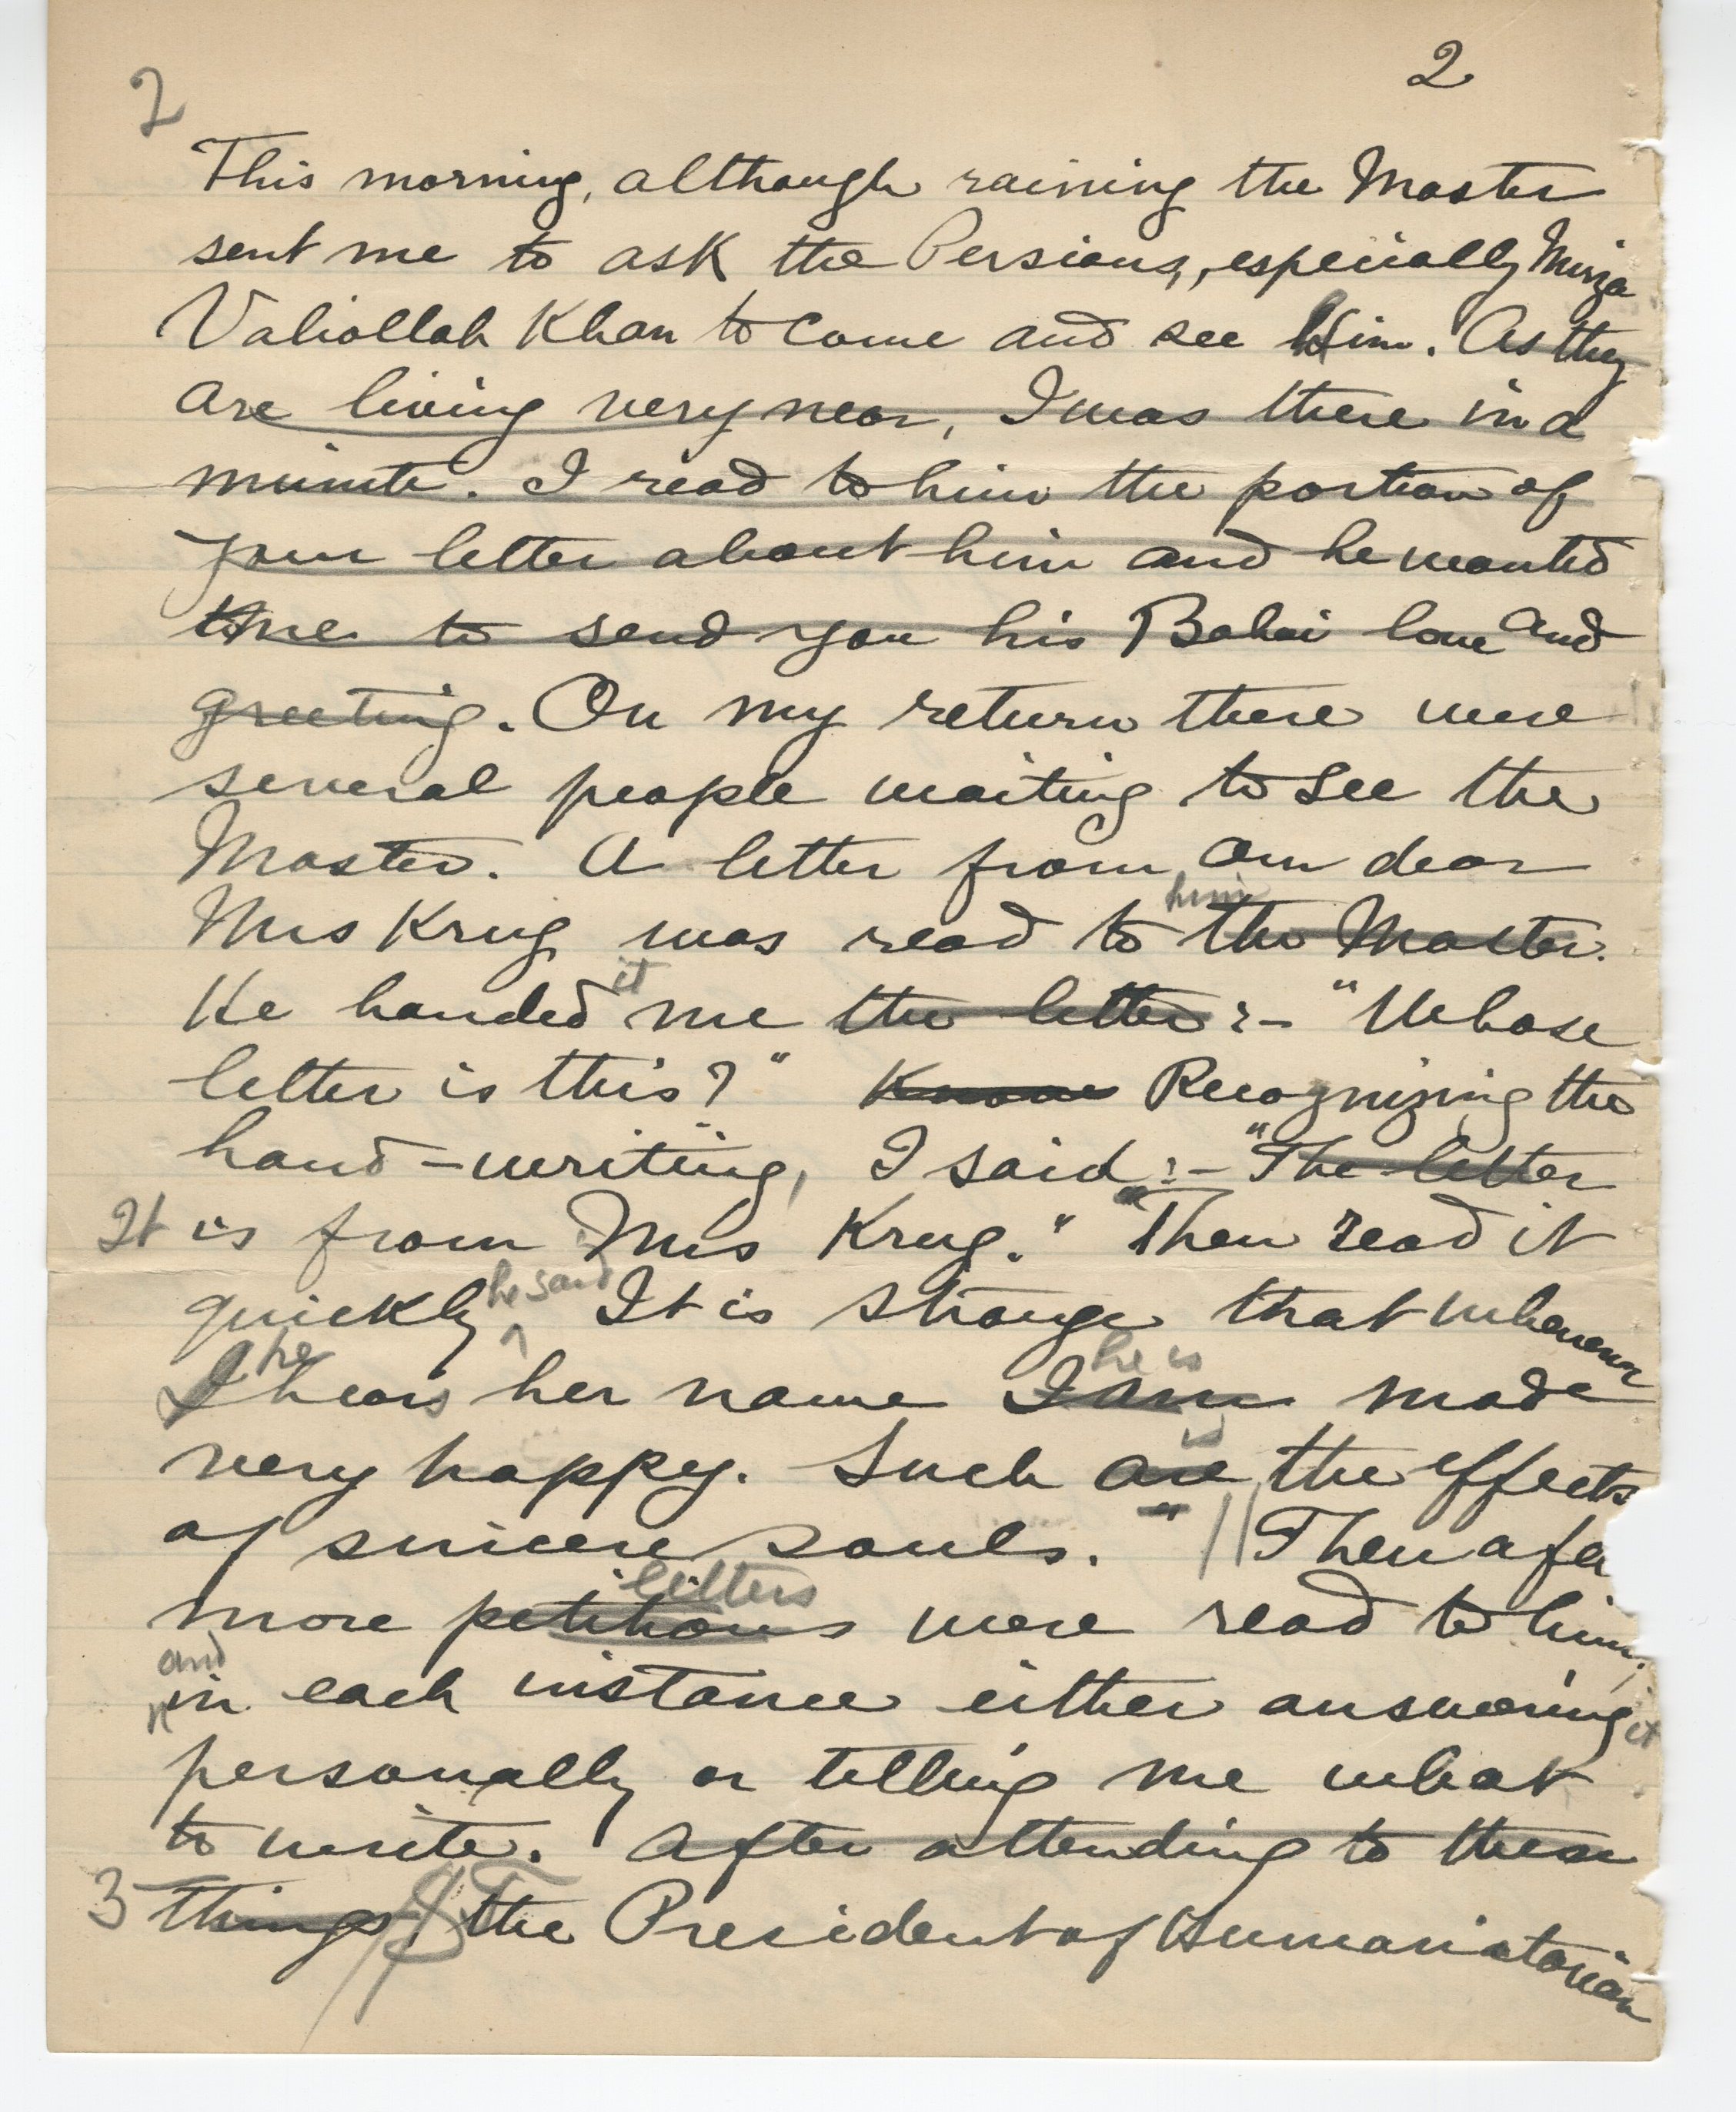 2
2
This morning, although raining the Master
sent me to ask the Persians, especially Mirza
Valiollah Khan to come and see Him. As they
are living very near, I was there in a
minute. I read to him the portion of
your letter about him and he wanted
me to send you his Bahai love and
greeting. On my return there were
several people waiting to see the
Master. A letter from our dear
him
Mrs Krug was read to the Master.
it
He handed me the letter :- "Whose
letter is this?" Know Recognizing the
hand-writing, I said :- "The letter
It is from Mrs Krug." "Then read it
quickly he said It is strange that whenever
he he is
I hears her name I am made
is
very happy. Such are the effects
of sincere souls." // Then a few
letters
more petitions were read to him.
and
in each instance either answering it
personally or telling me what
to write. After attending to these
3 things, the President of Humanitarian